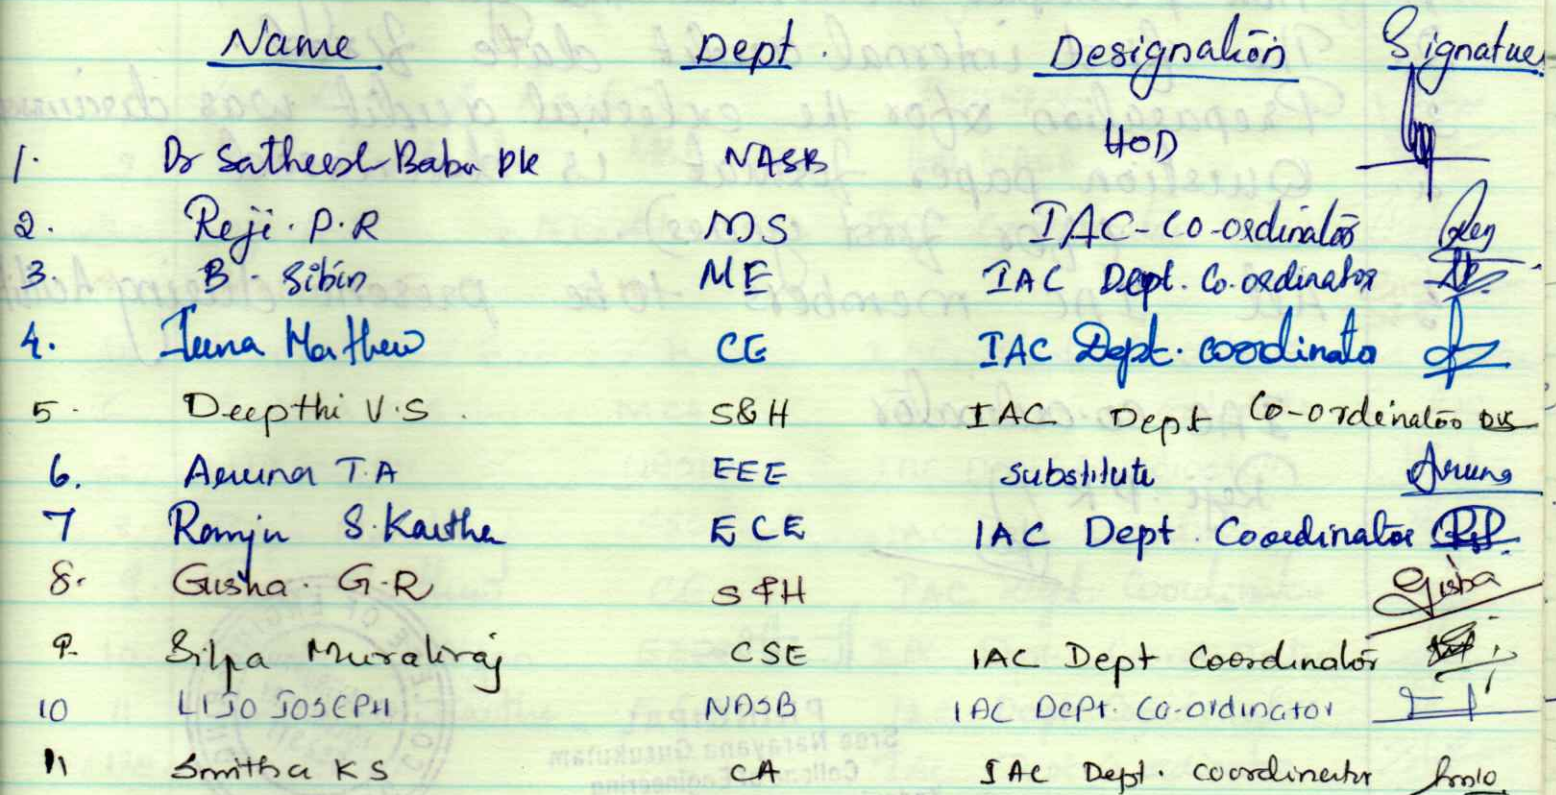 Name Dept. Designation Signature
1. Dr Satheesh Babu PK NASB HOD
2. Reji. P.R MS IAC-Co-ordinator Reji
3. B. Sibin ME IAC Dept. Co.ordinator
4. Teena Mathew CE IAC Dept. coordinator
5. Deepthi V.S. S&H IAC Dept Co-ordinator DVS
6. Aruna T.A EEE Substitute Aruna
7 Ramju S. Kartha ECE IAC Dept. Coordinator
8. Gisha. G.R S&H Gisha
9. Silpa Muraliraj CSE IAC Dept Coordinator
10 LIJO JOSEPH NASB IAC Dept. Co-ordinator
11 Smitha KS CA IAC Dept. coordinator